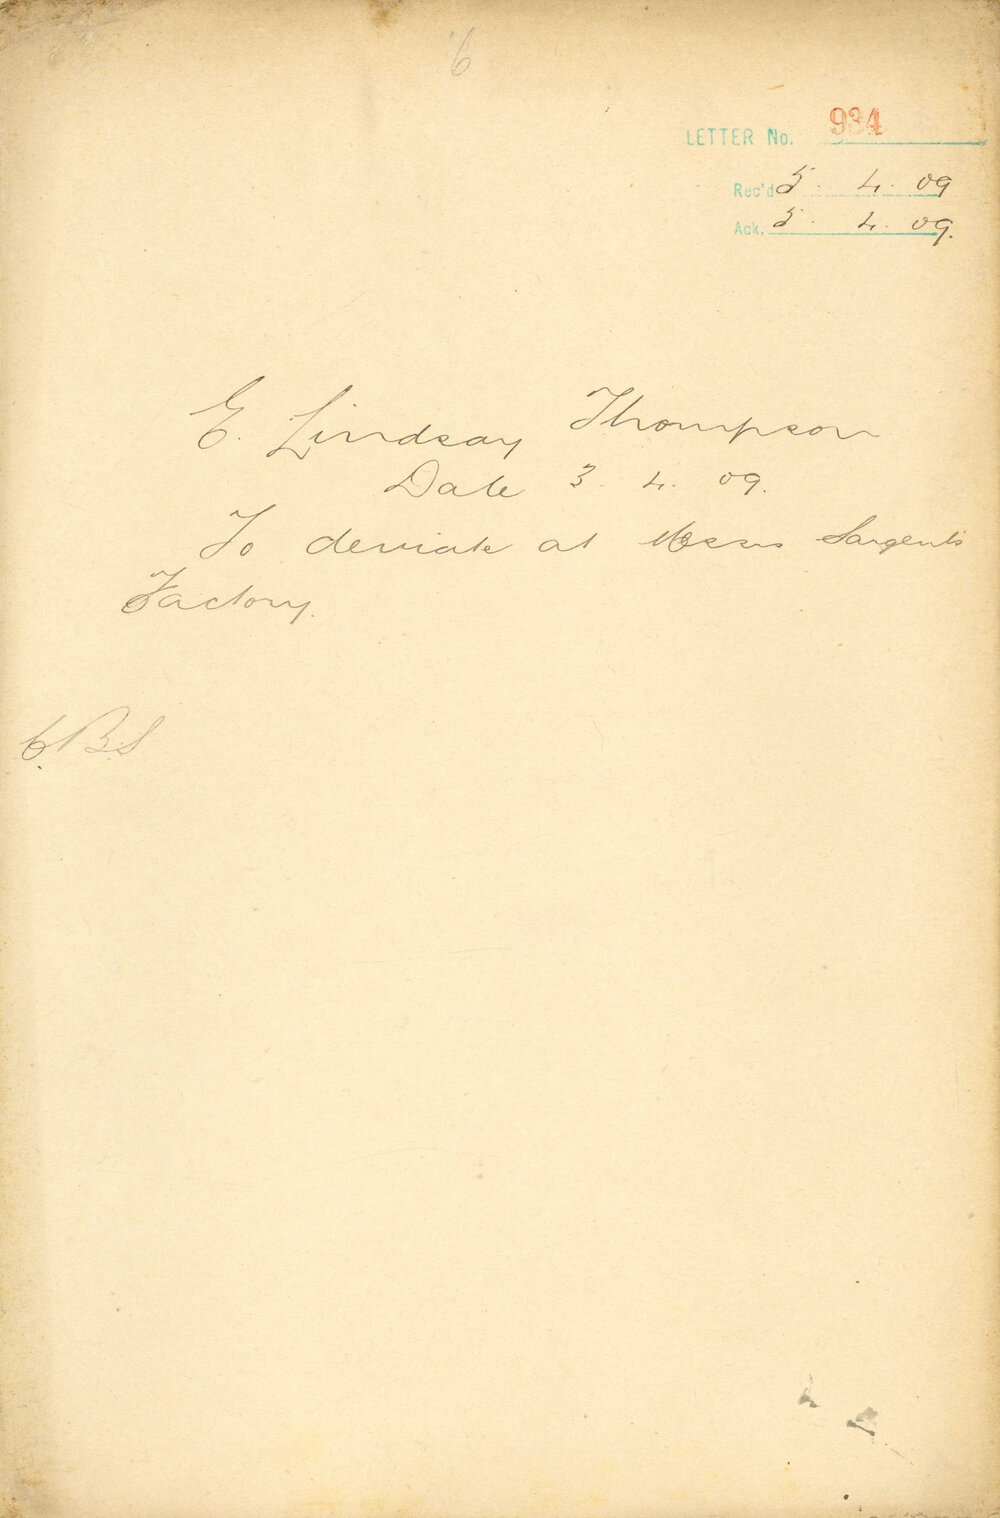 6
LETTER No. 934
Rec'd 5. 4. 09
Ack. 5. 4. 09.
E. Lindsay Thompson
Date 3. 4. 09.
To deviate at Messrs Sargents
Factory.
C.B.S